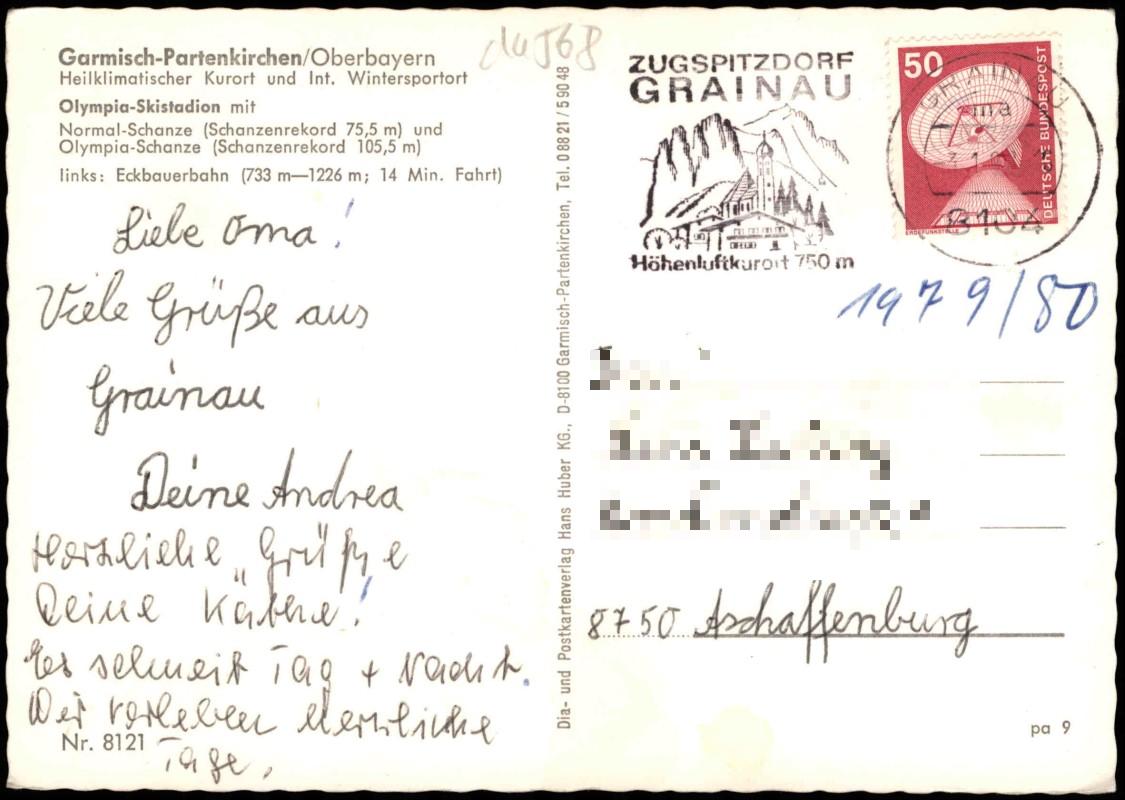 Garmisch-Partenkirchen/Oberbayern
Heilklimatischer Kurort und Int. Wintersportort
Olympia-Skistadion mit
Normal-Schanze (Schanzenrekord 75,5 m) und
Olympia-Schanze (Schanzenrekord 105,5 m)
links: Eckbauerbahn (733 m—1226 m; 14 Min. Fahrt)
Liebe Oma!
Viele Grüße aus
Grainau
Deine Andrea
Herzliche Grüße
Deine Käthe!
Es schneit Tag + Nacht.
Wir verleben herzliche
Tage.
Nr. 8121
Dia- und Postkartenverlag Hans Huber KG., D-8100 Garmisch-Partenkirchen, Tel. 08821/59048
ZUGSPITZDORF
GRAINAU
Höhenluftkurort 750 m
50
DEUTSCHE BUNDESPOST
ERDEFUNKSTELLE
GRAINAU
ma
8104
1979/80
8750 Aschaffenburg
pa 9